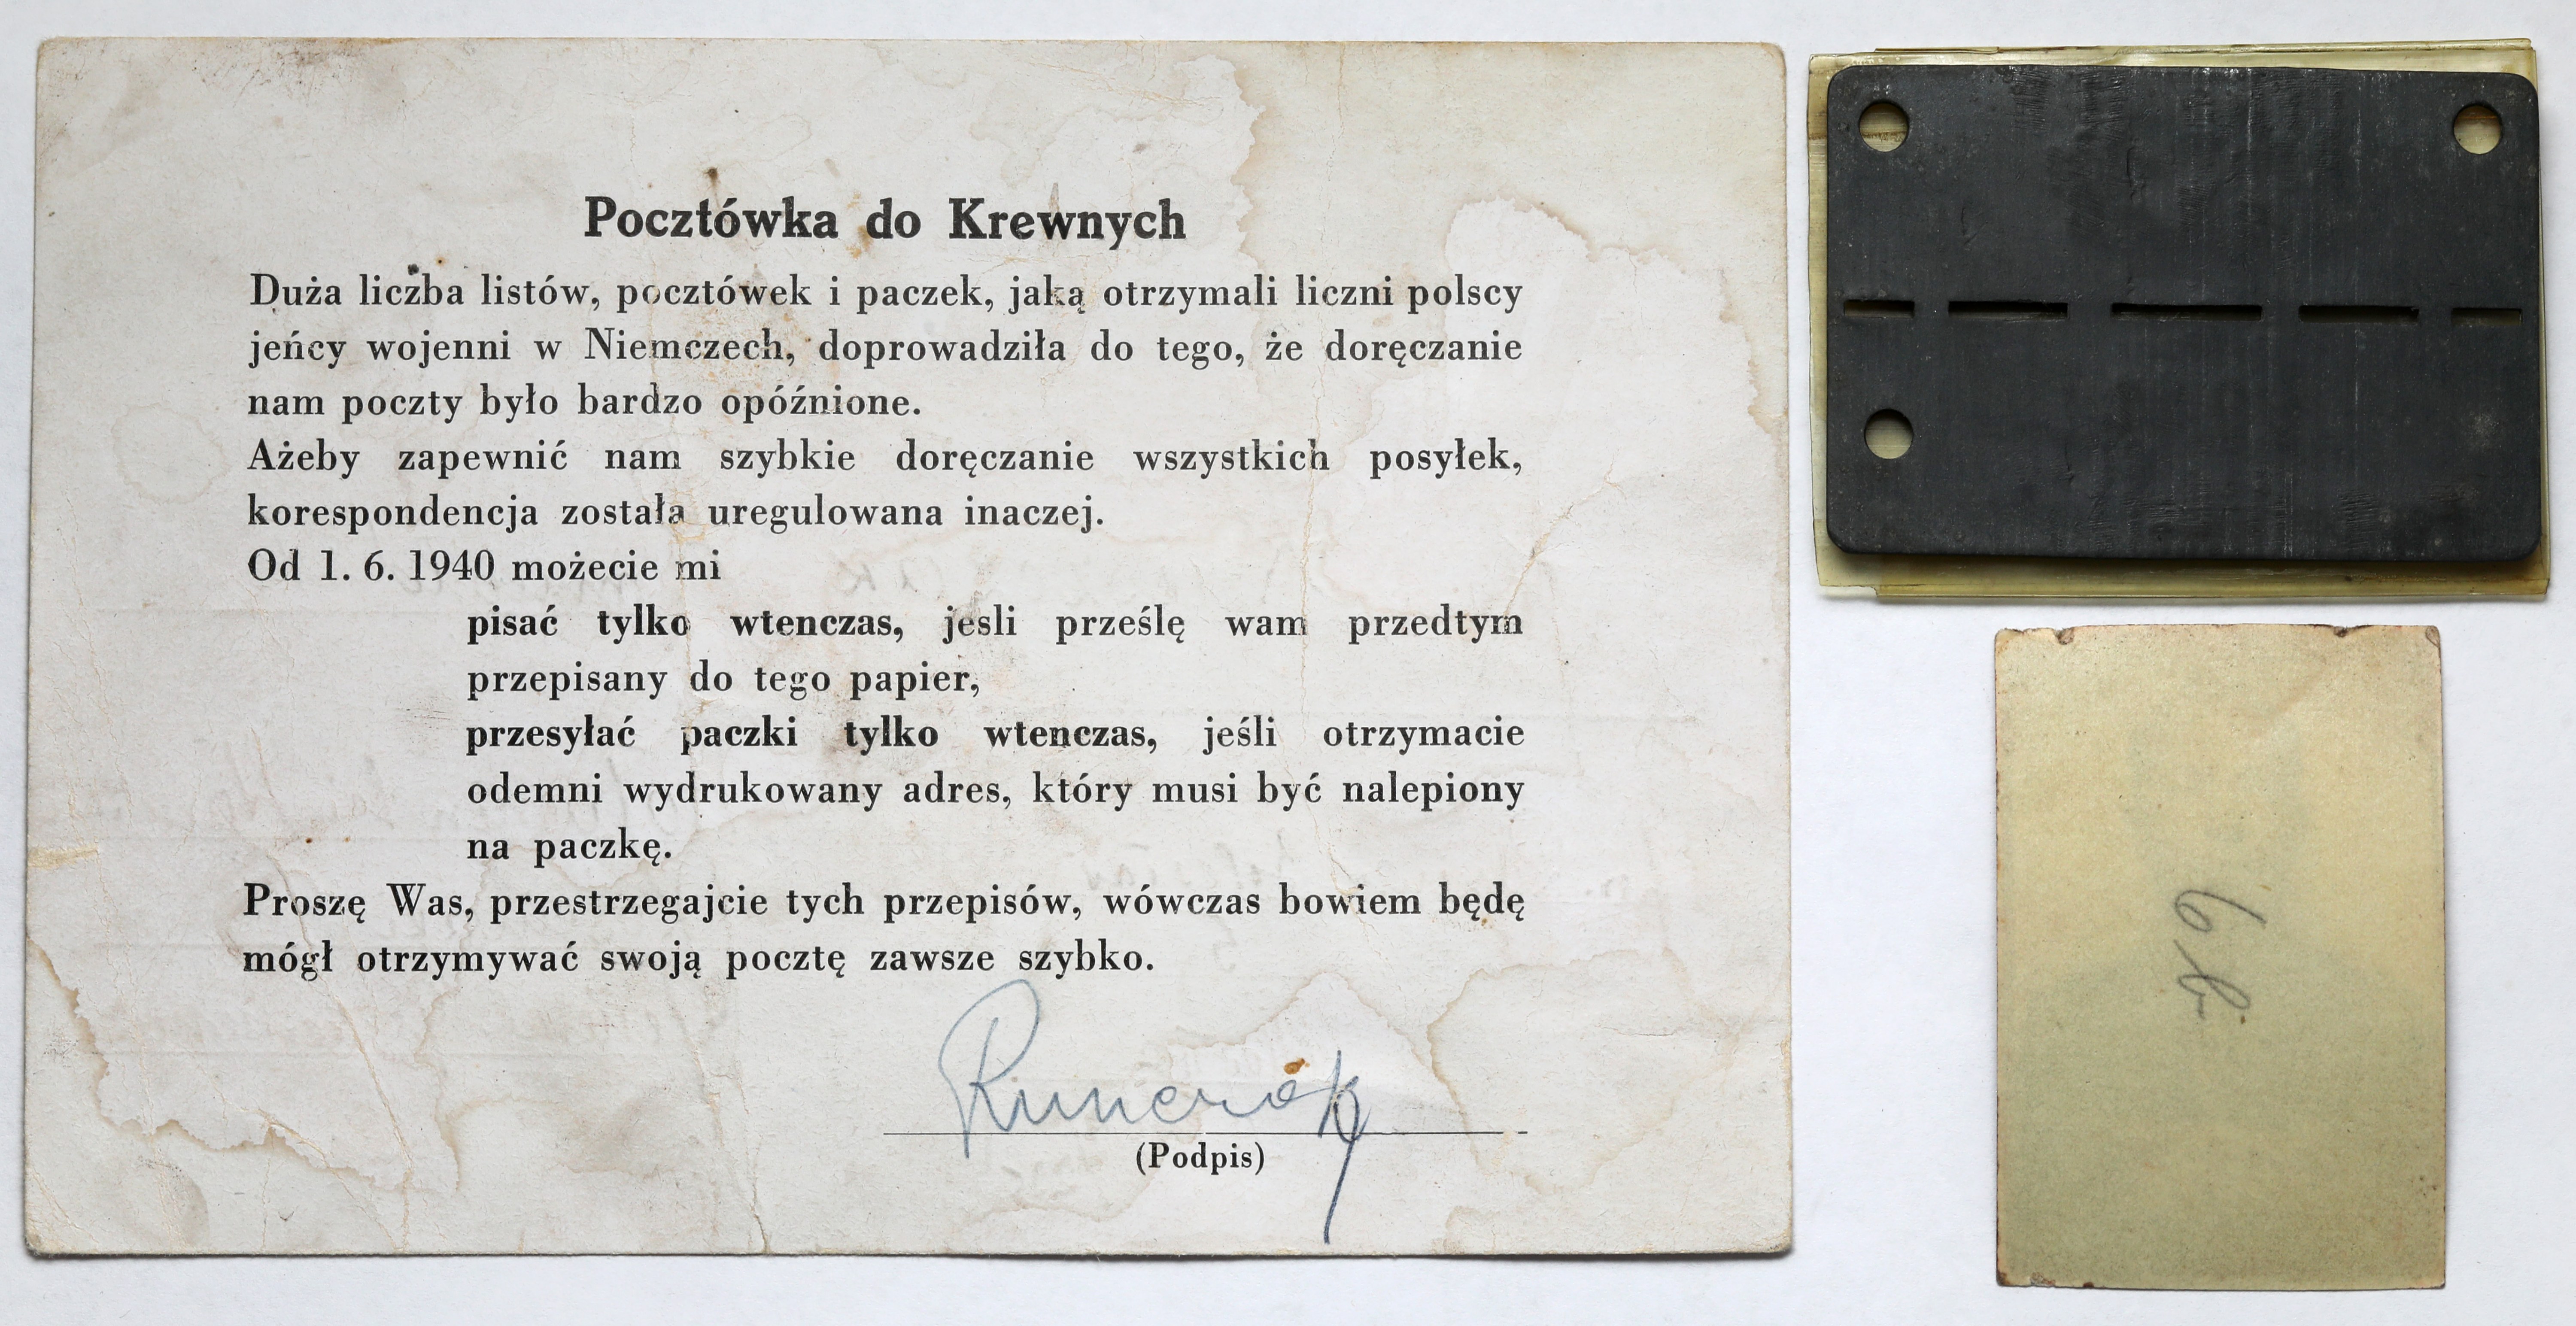 Pocztówka do Krewnych
Duża liczba listów, pocztówek i paczek, jaką otrzymali liczni polscy
jeńcy wojenni w Niemczech, doprowadziła do tego, że doręczanie
nam poczty było bardzo opóźnione.
Ażeby zapewnić nam szybkie doręczanie wszystkich posyłek,
korespondencja została uregulowana inaczej.
Od 1. 6. 1940 możecie mi
pisać tylko wtenczas, jeśli prześlę wam przedtym
przepisany do tego papier,
przesyłać paczki tylko wtenczas, jeśli otrzymacie
odemni wydrukowany adres, który musi być nalepiony
na paczkę.
Proszę Was, przestrzegajcie tych przepisów, wówczas bowiem będę
mógł otrzymywać swoją pocztę zawsze szybko.
(Podpis)
6b